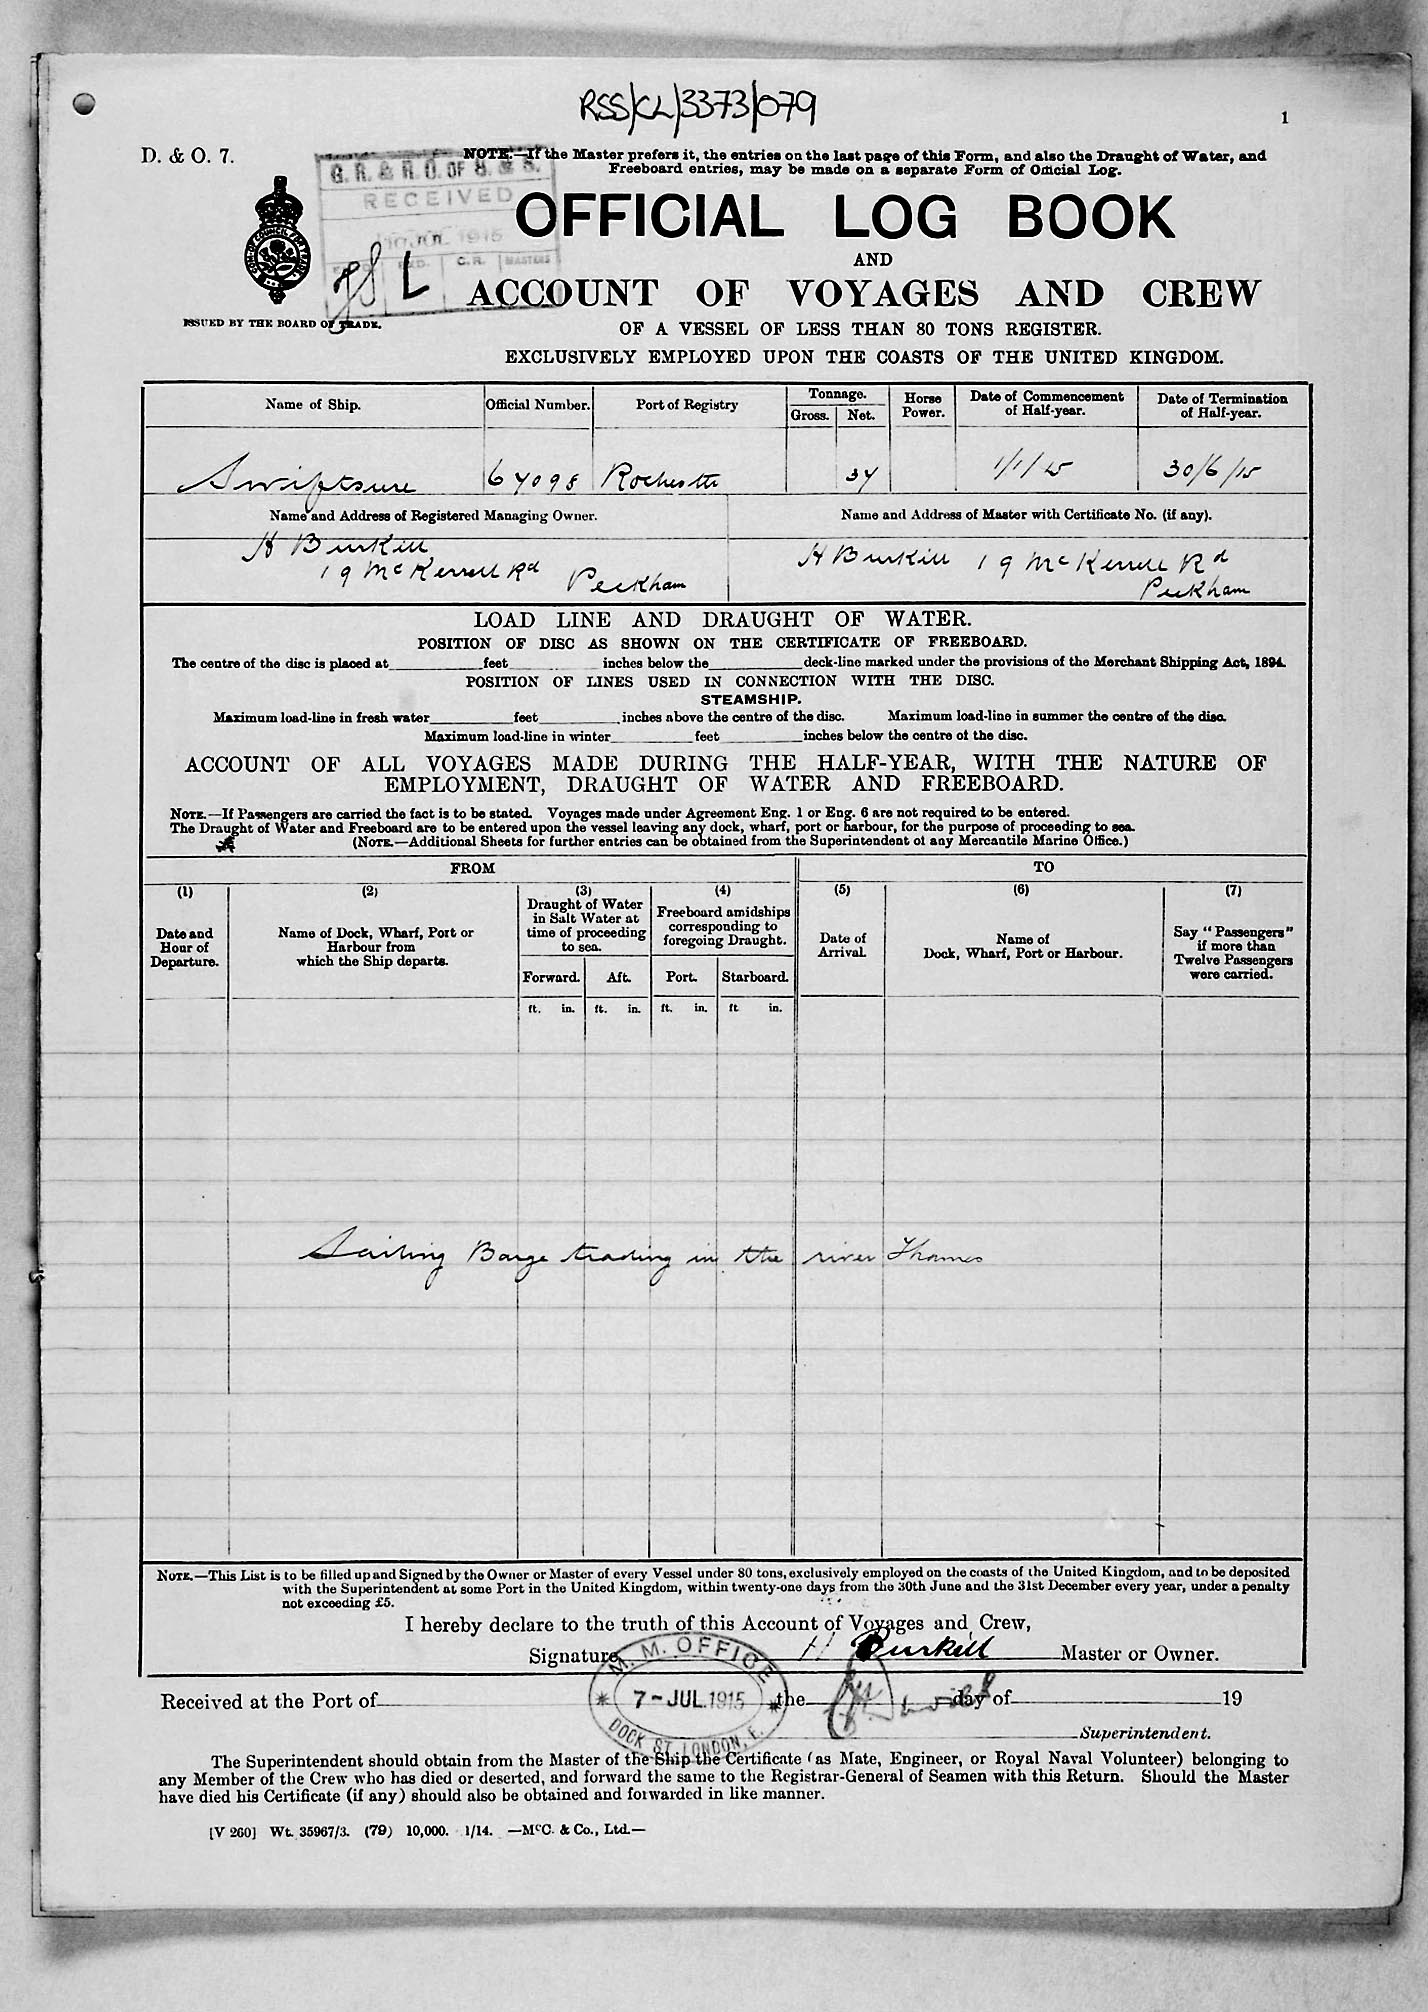 RSS/CL/3373/079
1
D. & O. 7.
NOTE.—If the Master prefers it, the entries on the last page of this Form, and also the Draught of Water, and
Freeboard entries, may be made on a separate Form of Official Log.
G. R. & R. O. OF S. & S.
RECEIVED
10 JUL 1915
C.R. MASTERS
L
OFFICIAL LOG BOOK
AND
ACCOUNT OF VOYAGES AND CREW
ISSUED BY THE BOARD OF TRADE.
OF A VESSEL OF LESS THAN 80 TONS REGISTER.
EXCLUSIVELY EMPLOYED UPON THE COASTS OF THE UNITED KINGDOM.
Name of Ship. Official Number. Port of Registry Tonnage. Gross. Net. Horse Power. Date of Commencement of Half-year. Date of Termination of Half-year.
Swiftsure 67098 Rochester 37 1/1/15 30/6/15
Name and Address of Registered Managing Owner. Name and Address of Master with Certificate No. (if any).
H Burkill H Burkill 19 McKerrell Rd
19 McKerrell Rd Peckham Peckham
LOAD LINE AND DRAUGHT OF WATER.
POSITION OF DISC AS SHOWN ON THE CERTIFICATE OF FREEBOARD.
The centre of the disc is placed at feet inches below the deck-line marked under the provisions of the Merchant Shipping Act, 1894.
POSITION OF LINES USED IN CONNECTION WITH THE DISC.
STEAMSHIP.
Maximum load-line in fresh water feet inches above the centre of the disc. Maximum load-line in summer the centre of the disc.
Maximum load-line in winter feet inches below the centre of the disc.
ACCOUNT OF ALL VOYAGES MADE DURING THE HALF-YEAR, WITH THE NATURE OF
EMPLOYMENT, DRAUGHT OF WATER AND FREEBOARD.
NOTE.—If Passengers are carried the fact is to be stated. Voyages made under Agreement Eng. 1 or Eng. 6 are not required to be entered.
The Draught of Water and Freeboard are to be entered upon the vessel leaving any dock, wharf, port or harbour, for the purpose of proceeding to sea.
(NOTE.—Additional Sheets for further entries can be obtained from the Superintendent of any Mercantile Marine Office.)
FROM TO
(1) (2) (3) (4) (5) (6) (7)
Date and Hour of Departure. Name of Dock, Wharf, Port or Harbour from which the Ship departs. Draught of Water in Salt Water at time of proceeding to sea. Freeboard amidships corresponding to foregoing Draught. Date of Arrival. Name of Dock, Wharf, Port or Harbour. Say "Passengers" if more than Twelve Passengers were carried.
Forward. Aft. Port. Starboard.
ft. in. ft. in. ft. in. ft in.
Sailing Barge trading in the river Thames
NOTE.—This List is to be filled up and Signed by the Owner or Master of every Vessel under 80 tons, exclusively employed on the coasts of the United Kingdom, and to be deposited
with the Superintendent at some Port in the United Kingdom, within twenty-one days from the 30th June and the 31st December every year, under a penalty
not exceeding £5.
I hereby declare to the truth of this Account of Voyages and Crew,
Signature H Burkill Master or Owner.
M. M. OFFICE
7-JUL.1915
DOCK ST. LONDON, E.
Received at the Port of the day of 19
Superintendent.
The Superintendent should obtain from the Master of the Ship the Certificate (as Mate, Engineer, or Royal Naval Volunteer) belonging to
any Member of the Crew who has died or deserted, and forward the same to the Registrar-General of Seamen with this Return. Should the Master
have died his Certificate (if any) should also be obtained and forwarded in like manner.
[V 260] Wt. 35967/3. (79) 10,000. 1/14. —McC. & Co., Ltd.—